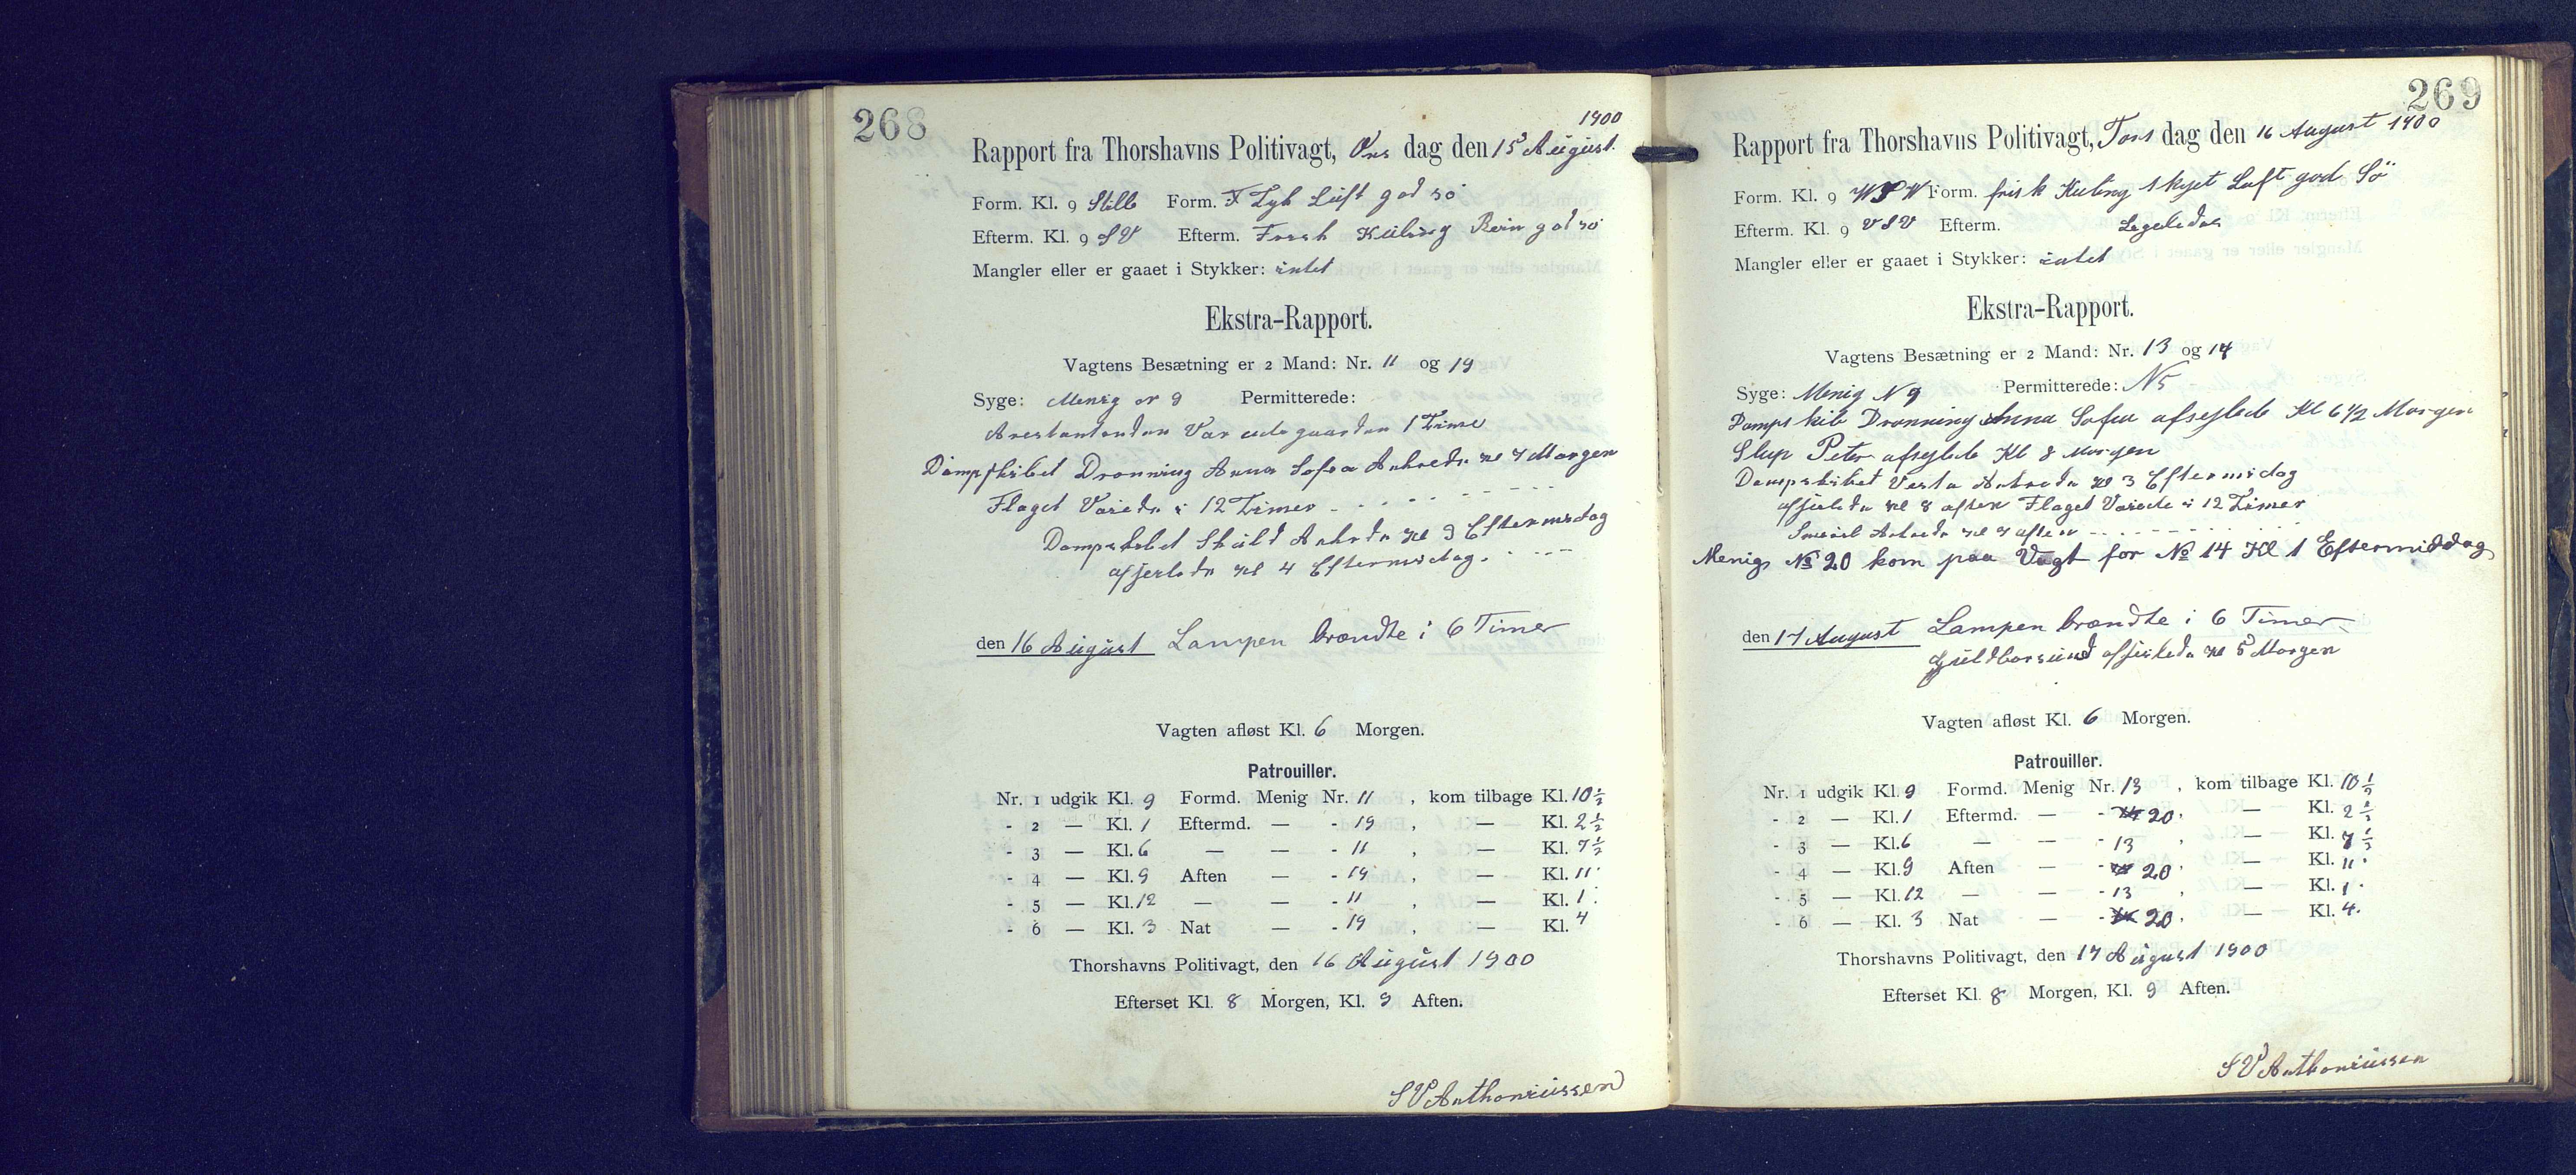 268
1900
Rapport fra Thorshavns Politivagt, Ons dag den 15 August.
Form. Kl. 9 Stille Form. Tyk Luft god sö
Efterm. Kl. 9 SV Efterm. Fresk Kuling Rein god sö
Mangler eller er gaaet i Stykker: intet
Ekstra-Rapport.
Vagtens Besætning er 2 Mand: Nr. 11 og 19
Syge: Menig nr 9 Permitterede:
Arestantenden Var ude gaarden 1 Time
Dampskibet Dronning Anna Sofea Ankrede Kl 7 Morgen
Flaget Vaiede i 12 Timer
Dampskibet Skúld Ankrede Kl 3 Eftermidag
afseilede Kl 4 Eftermidag.
den 16 August Lampen brændte i 6 Timer
Vagten afløst Kl. 6 Morgen.
Patrouiller.
Nr. 1 udgik Kl. 9 Formd. Menig Nr. 11 , kom tilbage Kl. 10 1/2
- 2 — Kl. 1 Eftermd. — - 19 , — Kl. 2 1/2
- 3 — Kl. 6 — — - 11 , — Kl. 7 1/2
- 4 — Kl. 9 Aften — - 19 , — Kl. 11
- 5 — Kl. 12 — — - 11 , — Kl. 1
- 6 — Kl. 3 Nat — - 19 , — Kl. 4
Thorshavns Politivagt, den 16 August 1900
Efterset Kl. 8 Morgen, Kl. 9 Aften.
S V Anthoniussen
269
Rapport fra Thorshavns Politivagt, Tors dag den 16 August 1900
Form. Kl. 9 WSW Form. frisk Kuling skyet Luft god Sö
Efterm. Kl. 9 VSV Efterm. Ligeledes
Mangler eller er gaaet i Stykker: intet
Ekstra-Rapport.
Vagtens Besætning er 2 Mand: Nr. 13 og 14
Syge: Menig N 9 Permitterede: N 5
Dampskib Dronning Anna Sofea afseglede Kl 6 1/2 Morgen
Slup Peter afseglede Kl 8 Morgen
Dampskibet Vesta Ankrede Kl 3 Eftermidag
afseilede Kl 8 aften Flaget Vaiede i 12 Timer
Smiril Ankrede Kl 7 aften
Menig No 20 kom paa Vagt for No 14 Kl 1 Eftermiddag
den 17 August Lampen brændte i 6 Timer
Guldborsund afseilede Kl 5 Morgen
Vagten afløst Kl. 6 Morgen.
Patrouiller.
Nr. 1 udgik Kl. 9 Formd. Menig Nr. 13 , kom tilbage Kl. 10 1/2
- 2 — Kl. 1 Eftermd. — - 14 20 , — Kl. 2 1/2
- 3 — Kl. 6 — — - 13 , — Kl. 7 1/2
- 4 — Kl. 9 Aften — - 14 20 , — Kl. 11
- 5 — Kl. 12 — — - 13 , — Kl. 1
- 6 — Kl. 3 Nat — - 14 20 , — Kl. 4.
Thorshavns Politivagt, den 17 August 1900
Efterset Kl. 8 Morgen, Kl. 9 Aften.
S V Anthoniussen